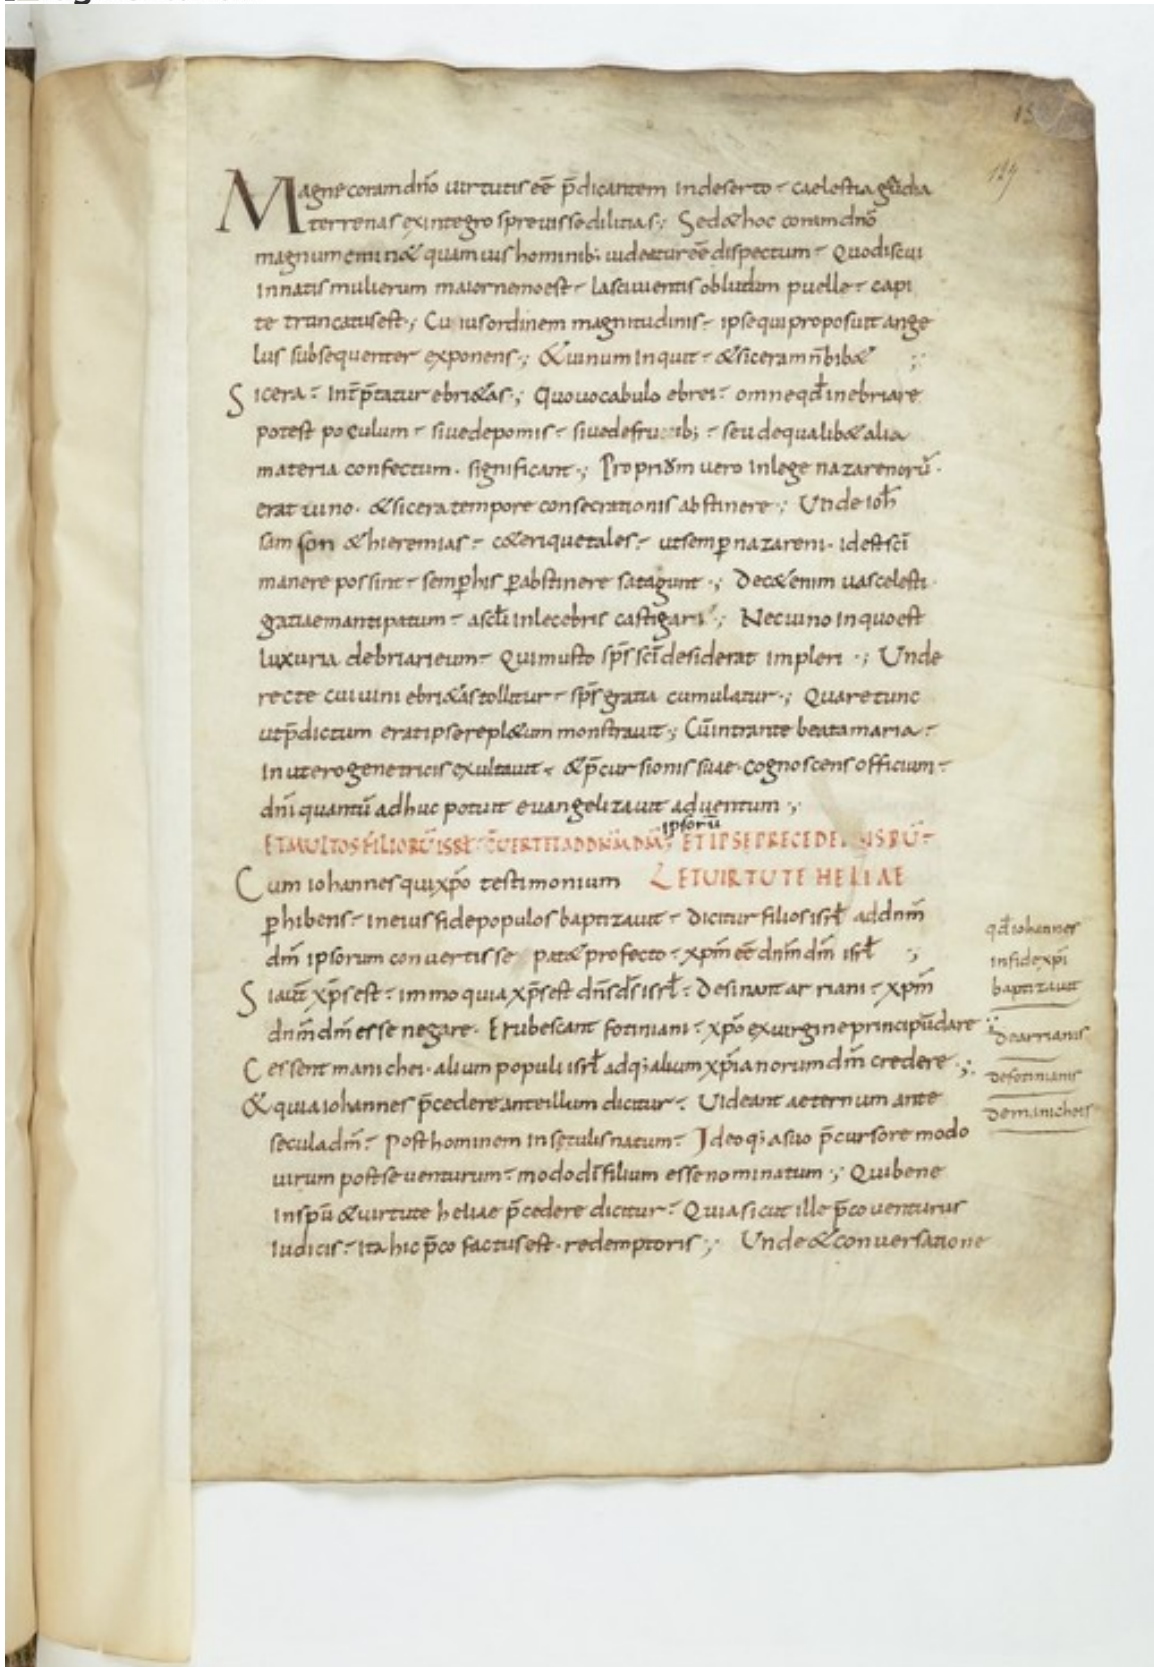 15
149
Magne coram dn̄o uirtutis eē p̄dicantem in deserto caelestia gaudia
terrenas ex integro spreuisse dilitias Sed & hoc coram dn̄o
magnum eminet quamuis hominib; uideatur eē dispectum Quod iscui
in natis mulierum maior nemo est lasciuientis ob ludum puelle capi
te truncatus est Cuius ordinem magnitudinis ipse qui proposuit ange
lus subsequenter exponens & uinum inquit & siceram n̄ bib&
Sicera int̄p̄tatur ebri&as Quo uocabulo ebrei omne qd̄ inebriare
potest poculum siue de pomis siue de frugib; seu de qualib& alia
materia confectum significant Proprium uero in lege nazarenorū
erat uino & sicera tempore consecrationis abstinere Unde ioh̄
samson & hieremias c&erique tales ut semꝑ nazareni id est scī
manere possint semꝑ his ꝑabstinere satagunt Dec& enim uas celesti
gratiae mantipatum a scl̄i inlecebris castigari Nec uino in quo est
luxuria debriari eum Qui musto sp̄s scī desiderat impleri Unde
recte cui uini ebri&as tollitur sp̄s gratia cumulatur Quare tunc
ut p̄dictum erat ipse repl&um monstrauit Cū intrante beata maria
in utero genetricis exultauit & p̄cursionis suae cognoscens officium
dn̄i quantū adhuc potuit euangelizauit aduentum
ipsorū
ET MULTOS FILIORŪ ISRL̄ C̄UERTET AD DN̄M DM̄ ET IPSE PRECEDE
Cum iohannes qui xp̄o testimonium ET UIRTUTE HELIAE
ꝑhibens in eius fide populos baptizauit dicitur filios isrl̄ ad dnm̄
dm̄ ipsorum conuertisse pat& profecto xpm̄ eē dnm̄ dm̄ isrl̄
Si aut̄ xp̄s est immo quia xp̄s est dn̄s ds̄ isrl̄ Desinant arriani xpm̄
dnm̄ dm̄ esse negare Erubescant fotiniani xp̄o ex uirgine principiū dare
Cessent manichei alium populi isrl̄ adq; alium xp̄ianorum dm̄ credere
& quia iohannes p̄cedere ante illum dicitur Uideant aeternum ante
secula dm̄ Post hominem in seculis natum Ideoq; a suo p̄cursore modo
uirum post se uenturum modo dī filium esse nominatum Qui bene
in spū & uirtute heliae p̄cedere dicitur Quia sicut ille p̄co uenturus
iudicis Ita hic p̄co factus est redemptoris Unde & conuersatione
qd̄ iohannes
in fide xpi
baptizauit
de arrianis
de fotinianis
de manicheis